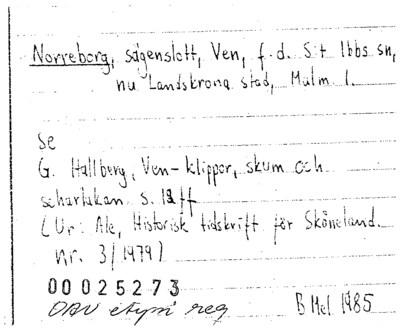 Norreborg, sägenslott, Ven, f.d. S:t Ibbs sn,
nu Landskrona stad, Malm. l.
se
G. Hallberg, Ven - klippor, skum och
scharlakan s. 12 ff
(Ur: Ale, Historisk tidskrift för Skåneland.
nr. 3/1979)
00025273
OAU etym reg
B Mel. 1985